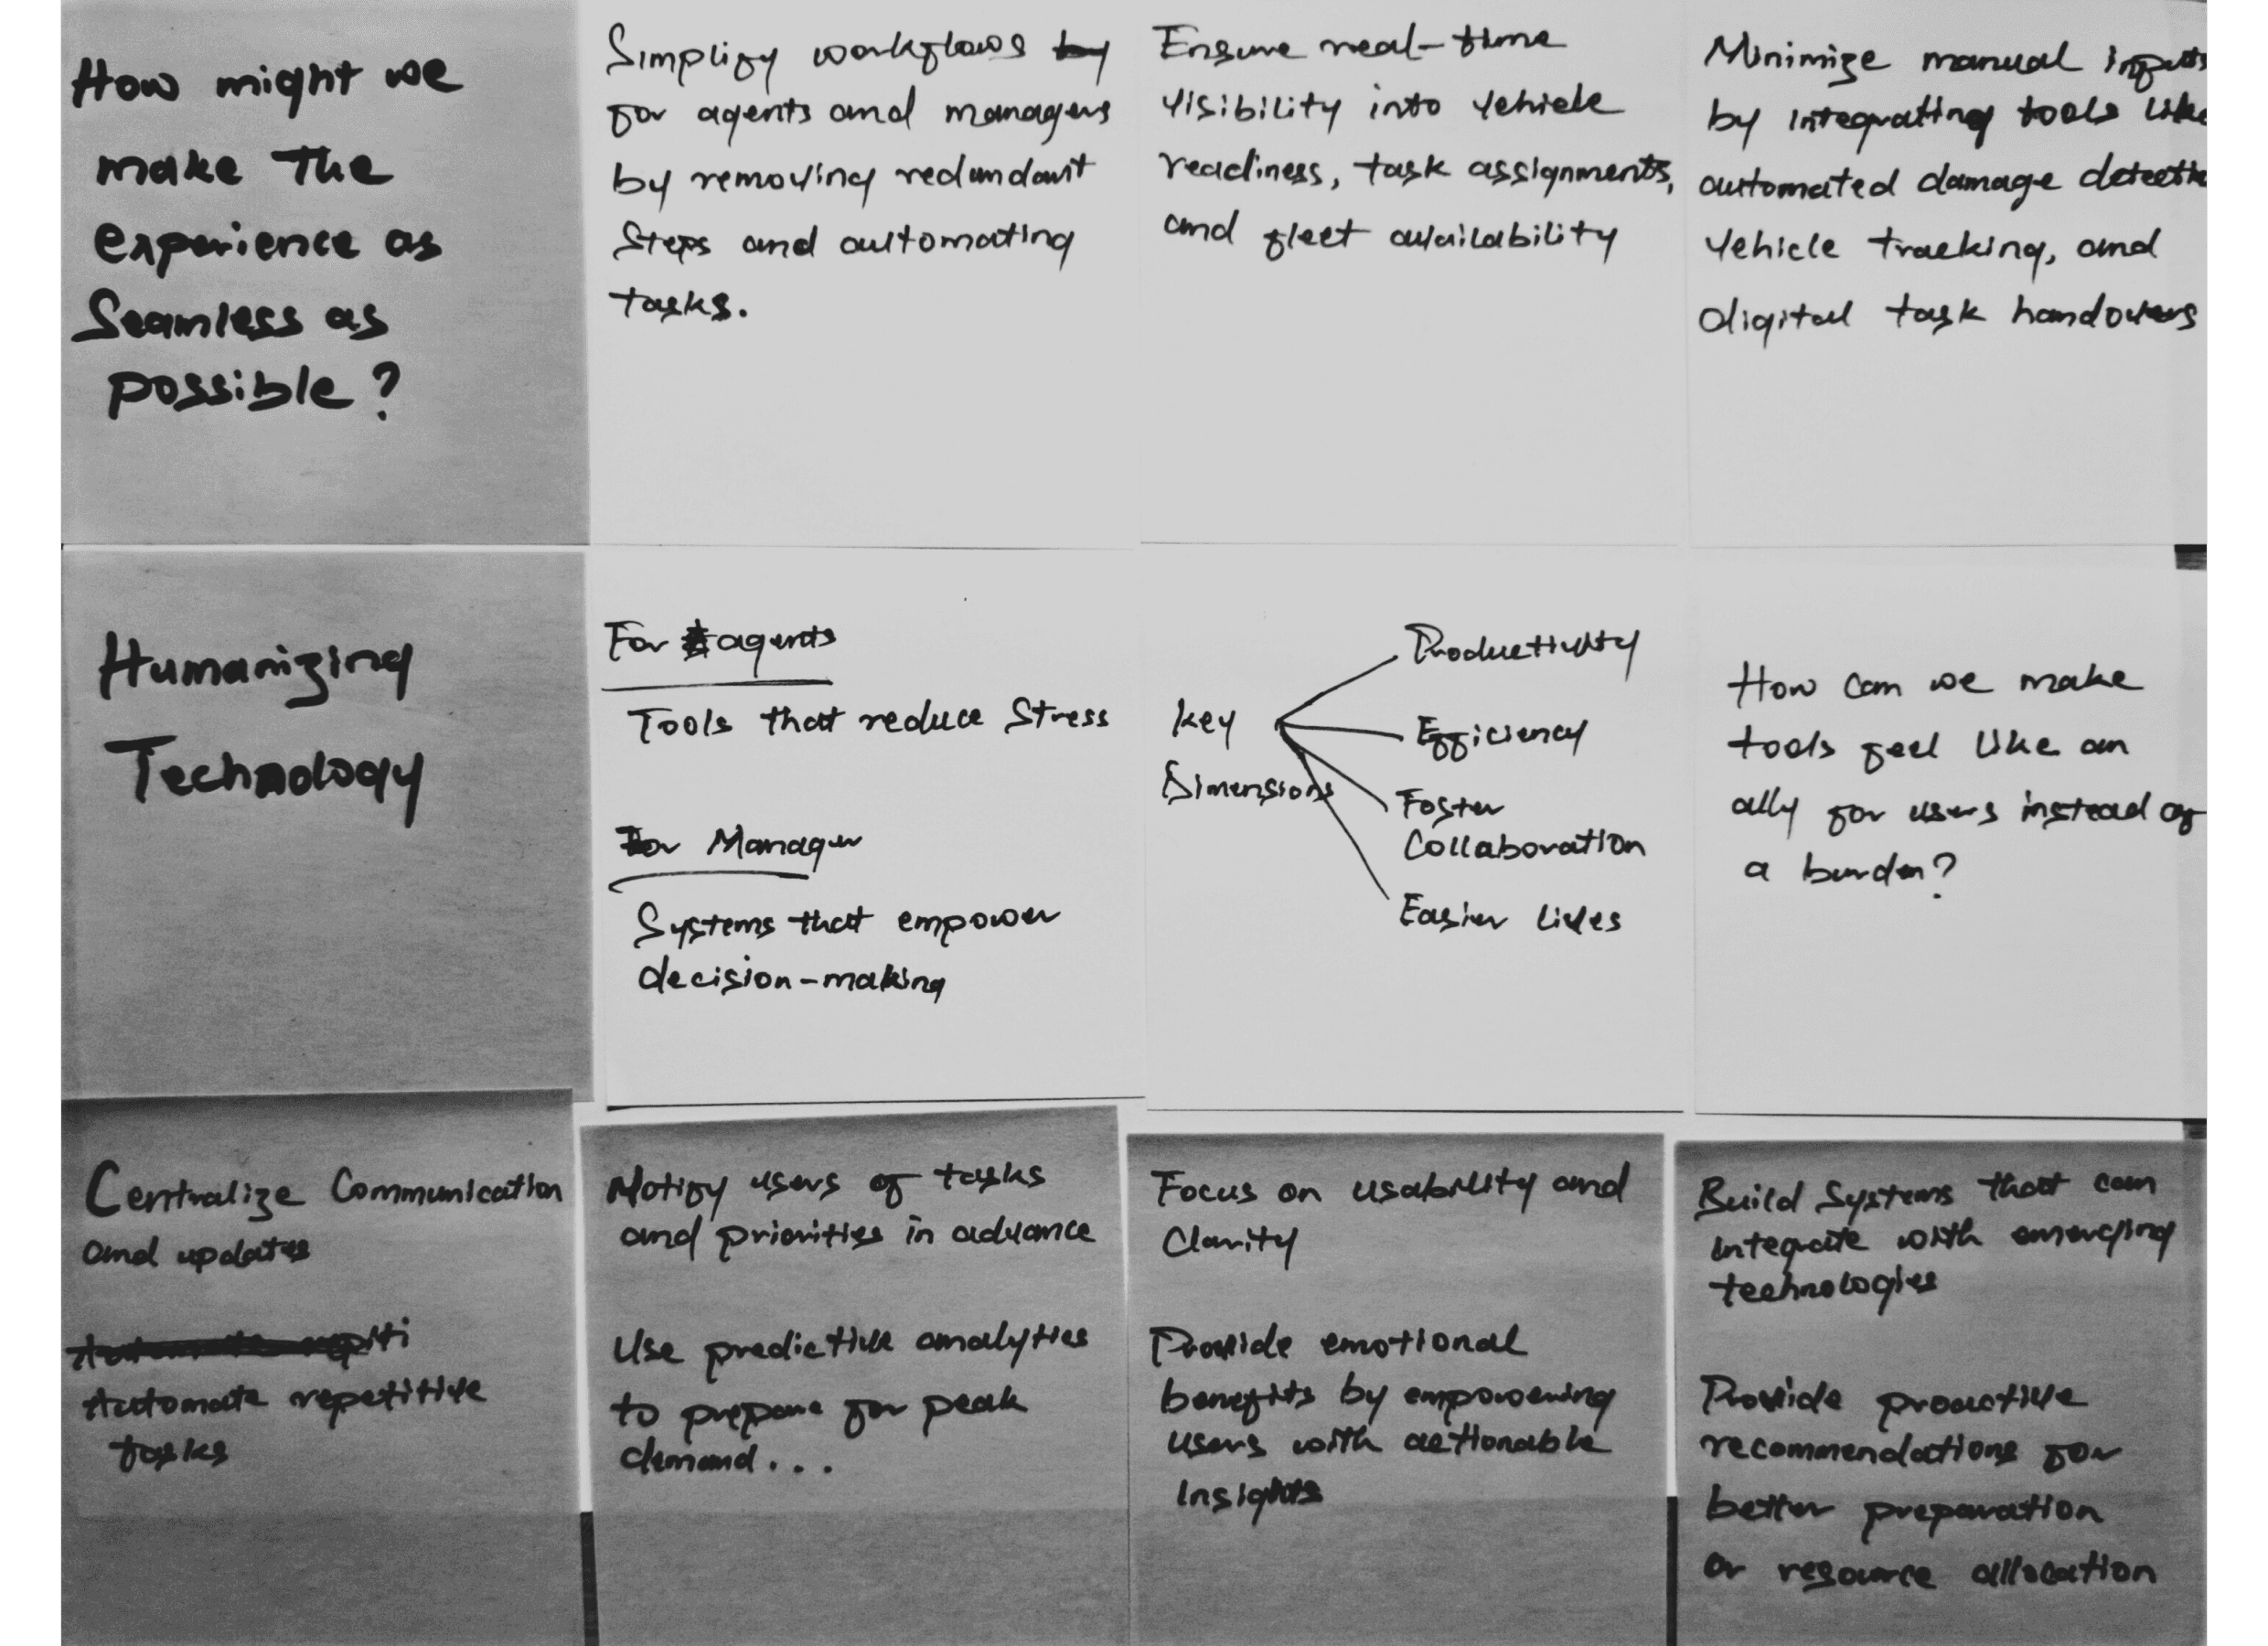 How might we
make The
experience as
Seamless as
possible?
Simplify workflows by
for agents and managers
by removing redundant
Steps and automating
tasks.
Ensure real-time
visibility into vehicle
readiness, task assignments,
and fleet availability
Minimize manual inputs
by integrating tools like
automated damage detection
vehicle tracking, and
digital task handovers
Humanizing
Technology
For agents
Tools that reduce Stress
For Manager
Systems that empower
decision-making
Key
Dimensions
Productivity
Efficiency
Foster
Collaboration
Easier lives
How can we make
tools feel like an
ally for users instead of
a burden?
Centralize Communication
and updates
Automate repiti
Automate repetitive
tasks
Notify users of tasks
and priorities in advance
Use predictive analytics
to prepare for peak
demand...
Focus on usability and
Clarity
Provide emotional
benefits by empowering
users with actionable
insights
Build Systems that can
integrate with emerging
technologies
Provide proactive
recommendations for
better preparation
or resource allocation